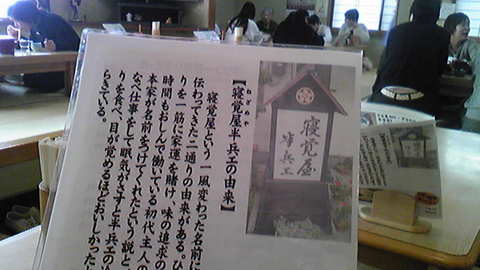 【寝覚屋半兵エの由来】
ねざめや
寝覚屋という一風変わった名前に
伝わってきた二通りの由来がある。ひ
りを一筋に家運を賭け、味の追求の
時間もおしんで働いている初代主人の
本家が名前をつけてくれたという説と、
なべ仕事をして眠気がさすと半兵エの
りを食べ、目が覚めるほどおいしかった
らきている。
寝覚屋
半兵エ